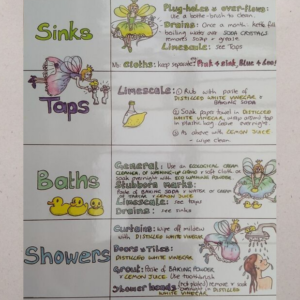 Sinks
Plug-holes & over-flows:
Use a bottle-brush to clean.
Drains: Once a month
boiling water over SODA CRYSTALS
removes soap & grease
Limescale: see Taps
Cloths: keep separate
Pink = sink, Blue = loo
Taps
Limescale: ① Act with paste of
DISTILLED WHITE VINEGAR &
BAKING SODA
② Soak paper towel in DISTILLED
WHITE VINEGAR, wrap around tap
in plastic bag. Leave overnight.
③ As above with LEMON JUICE
- wipe clean
Baths
General: Use an ECOLOGICAL CREAM
CLEANER, or WASHING-UP LIQUID & soft Cloth or
soak overnight with ECO WASHING POWDER
Stubborn marks:
Paste of BAKING SODA & WATER or CREAM
of TARTAR & LEMON JUICE
Limescale: see taps
Drains: see sinks
Showers
Curtains: Wipe off mildew
with DISTILLED WHITE VINEGAR
Doors & Tiles:
DISTILLED WHITE VINEGAR
Grout: Paste of BAKING POWDER
& LEMON JUICE. Use toothbrush
Shower heads: remove & soak
overnight in DISTILLED
WHITE VINEGAR